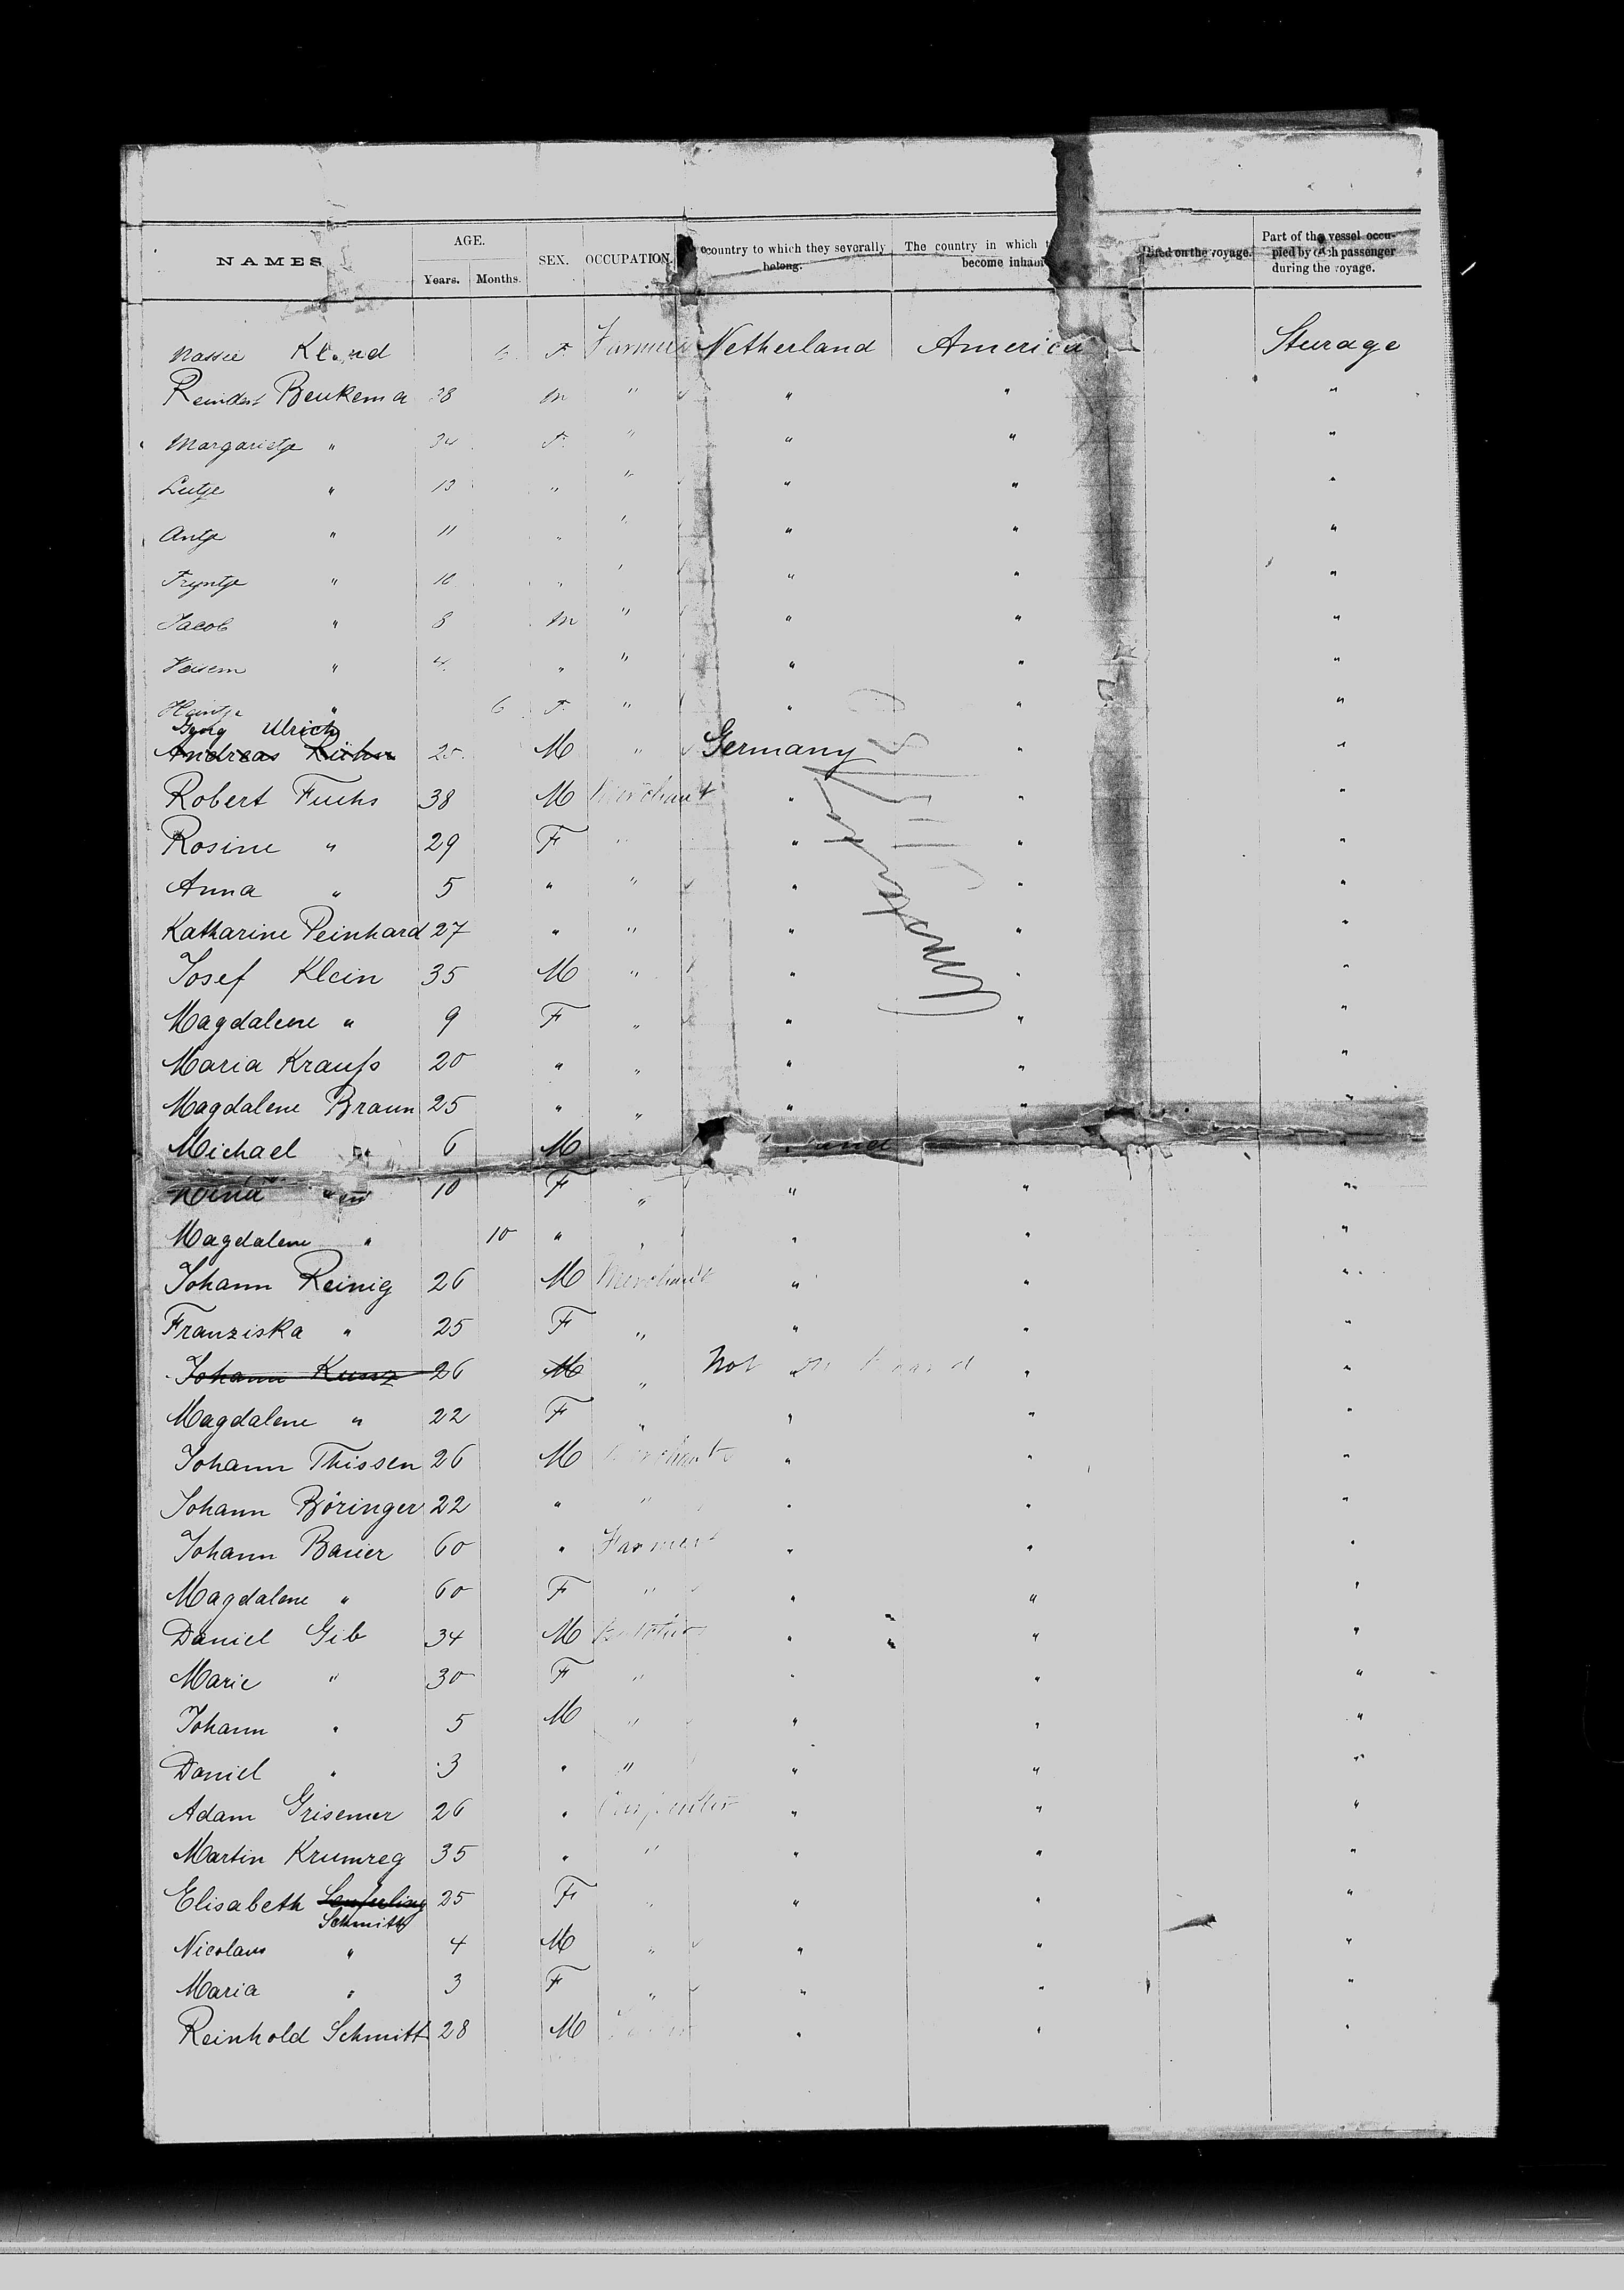 NAMES AGE. Years. Months. SEX. OCCUPATION. country to which they severally belong. The country in which become on the voyage. Part of the vessel occupied by each passenger during the voyage.
6 F. Farmer Netherland America Sturage
Beukema 38 M " " " "
Margarietje " 34 F. " " " "
Lutje " 13 " " " " "
Antje " 11 " " " " "
Tryntje " 10 " " " " "
Jacob " 8 M " " " "
" 4 " " " " "
" 6 F. " " " "
Georg Ulrich
Andreas Kühn 25 M " Germany " "
Robert Fuchs 38 M Merchant " " "
Rosine " 29 F " " " "
Anna " 5 " " " " "
Katharine Peinhard 27 " " " " "
Josef Klein 35 M " " " "
Magdalene " 9 F " " " "
Maria Krauſs 20 " " " " "
Magdalene Braun 25 " " " " "
Michael " 6 M
Nina " 10 F " " " "
Magdalene " 10 " " " " "
Johann Reinig 26 M Merchant " " "
Franziska " 25 F " " " "
Johann Kunz 26 M " Not on board " "
Magdalene " 22 F " " " "
Johann Thissen 26 M Merchant " " "
Johann Böringer 22 " " " " "
Johann Bauer 60 " Farmer " " "
Magdalene " 60 F " " " "
Daniel Gib 34 M " " "
Marie " 30 F " " " "
Johann " 5 M " " " "
Daniel " 3 " " " " "
Adam Grisemer 26 " Carpenter " " "
Martin Krumreg 35 " " " " "
Elisabeth 25 F " " " "
Schmitt
Nicolaus " 4 M " " " "
Maria " 3 F " " " "
Reinhold Schmitt 28 M " " "